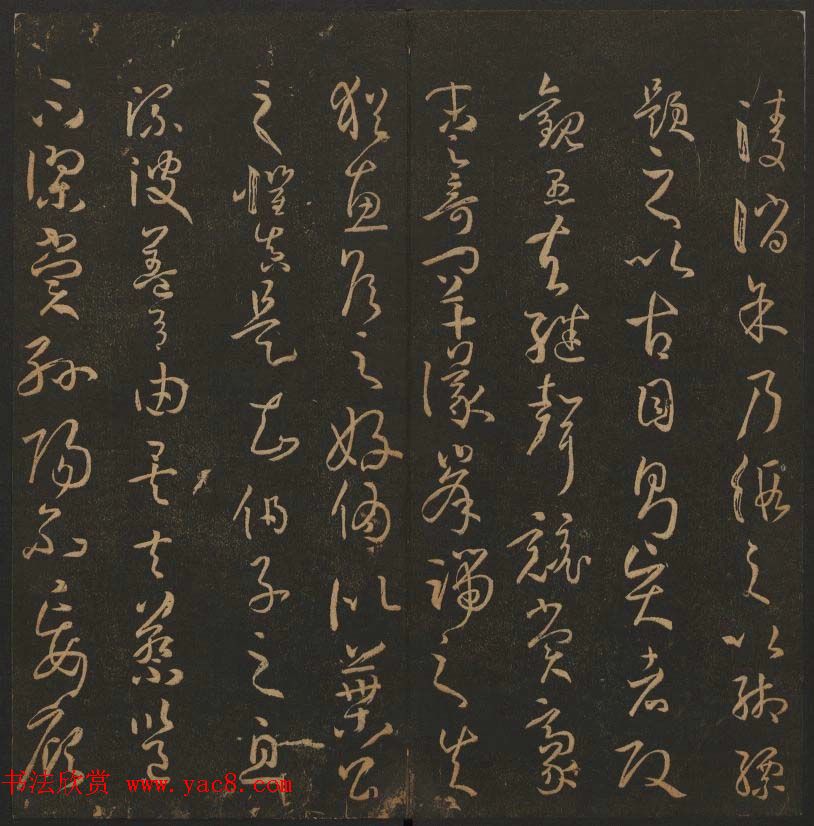 陵誚余乃假之以緗縹
題之以古目則賢者改
觀愚夫繼聲競賞豪
末之奇罕議峯端之失
猶惠侯之好偽似葉公
之懼真是知伯子之息
流波蓋有由矣夫蔡邕
不謬賞孫陽不妄顧
书法欣赏 www.yac8.com